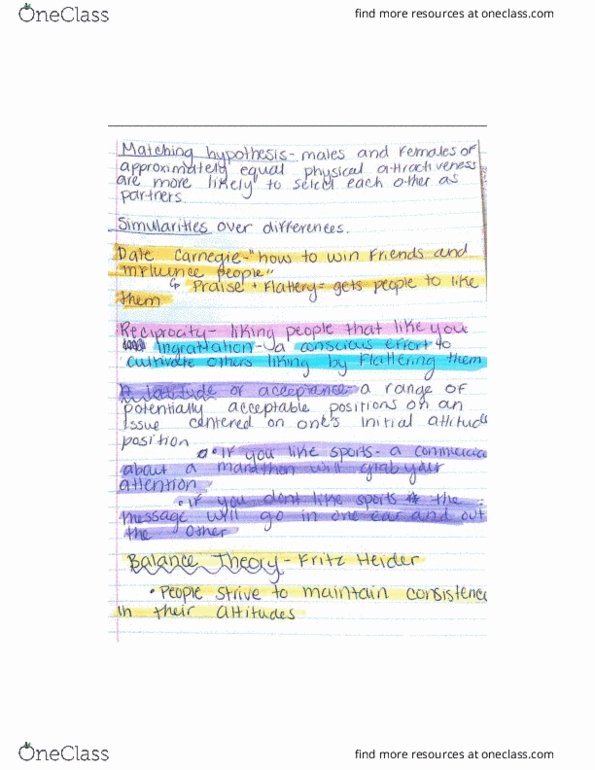 OneClass
find more resources at oneclass.com
Matching hypothesis- males and females of
approximately equal physical attractiveness
are more likely to select each other as
partners.
Simularities over differences.
Date Carnegie-"how to win Friends and
Influence People"
↳ Praise + Flattery= gets people to like
them
Reciprocity- liking people that like you
Ingratiation- a conscious effort to
cultivate others liking by Flattering them
latitude of acceptance- a range of
potentially acceptable positions on an
Issue centered on one's initial attitud
position
• If you like sports- a commercia
about a marathon will grab your
attention
• If you dont like sports the
message will go in one ear and out
the other
Balance Theory- Fritz Heider
• People strive to maintain consistenc
in their attitudes
OneClass
find more resources at oneclass.com